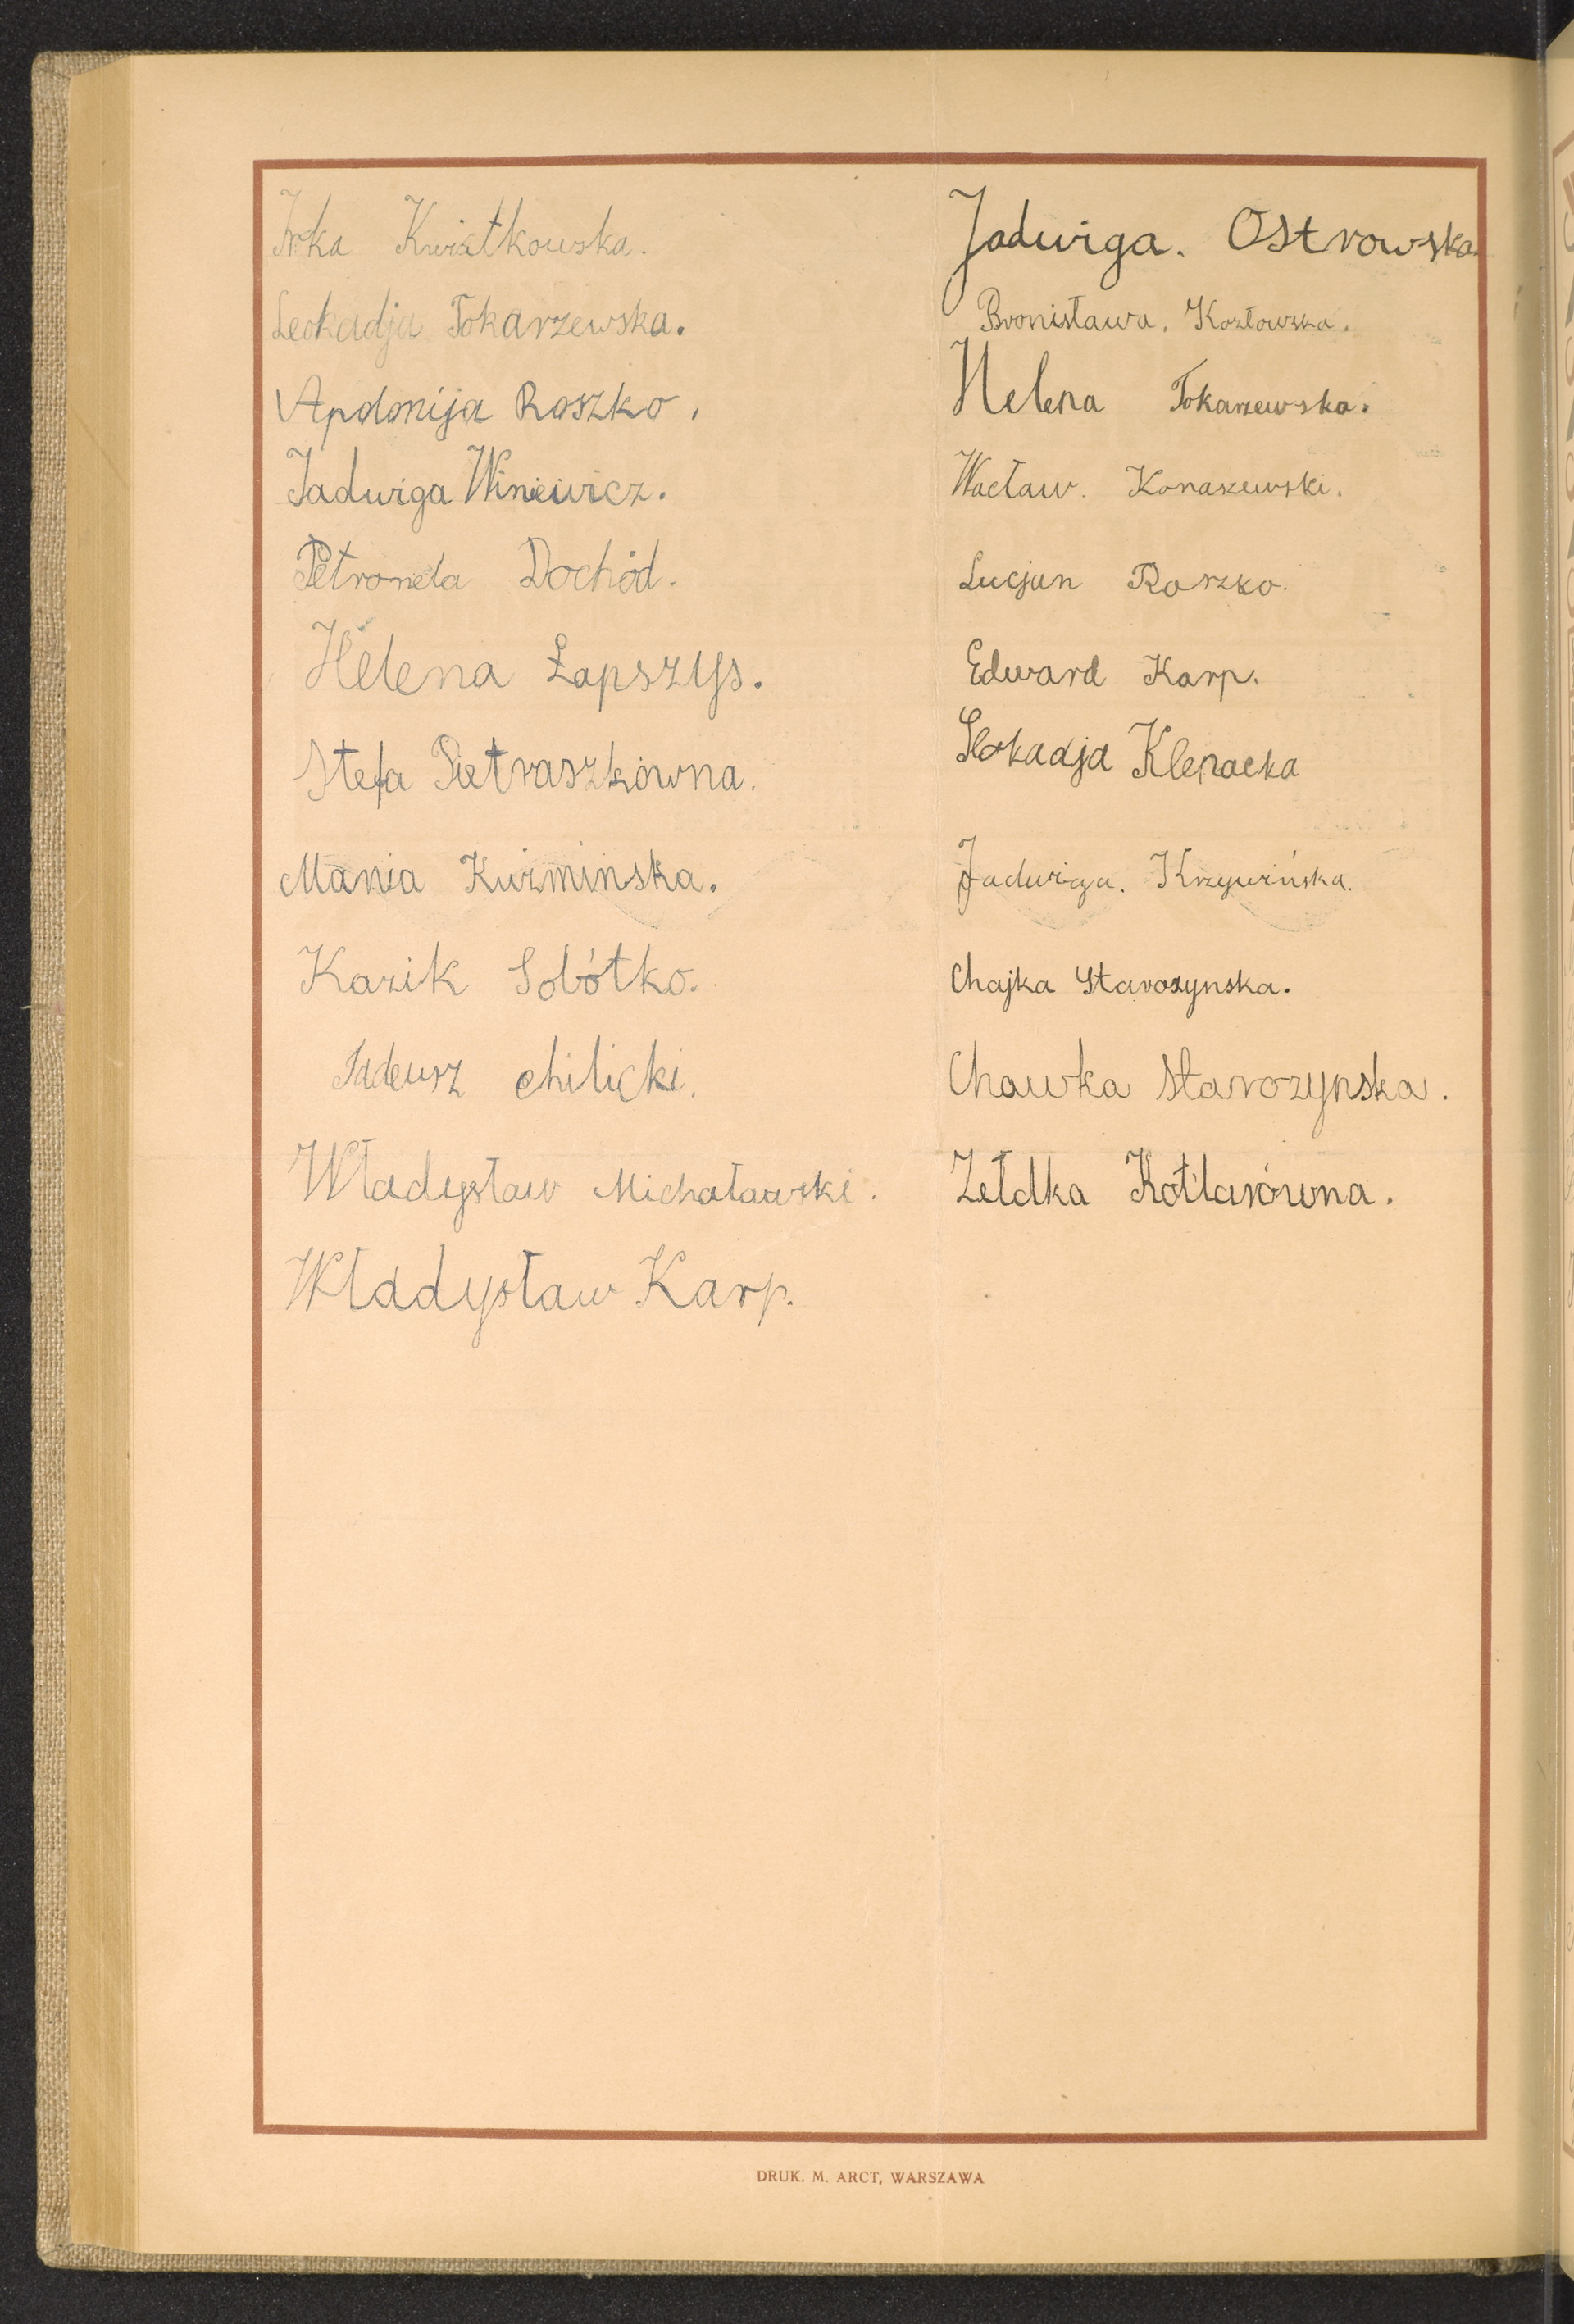 Irka Kwiatkowska.
Leokadja Tokarzewska.
Apolonija Roszko.
Jadwiga Winiewicz.
Petronela Dochód.
Helena Łapszys.
Stefa Pietraszkówna.
Mania Kuźmińska.
Kazik Sobótko.
Tadeusz Chilicki.
Władysław Michałowski.
Władysław Karp.
Jadwiga. Ostrowska.
Bronisława. Kozłowska.
Helena Tokarzewska.
Wacław. Konaszewski.
Lucjan Roszko.
Edward Karp.
Leokadja Klepacka
Jadwiga. Krzywińska.
Chajka Starozynska.
Chawka Starozynska.
Zełdka Kotlarówna.
DRUK. M. ARCT, WARSZAWA